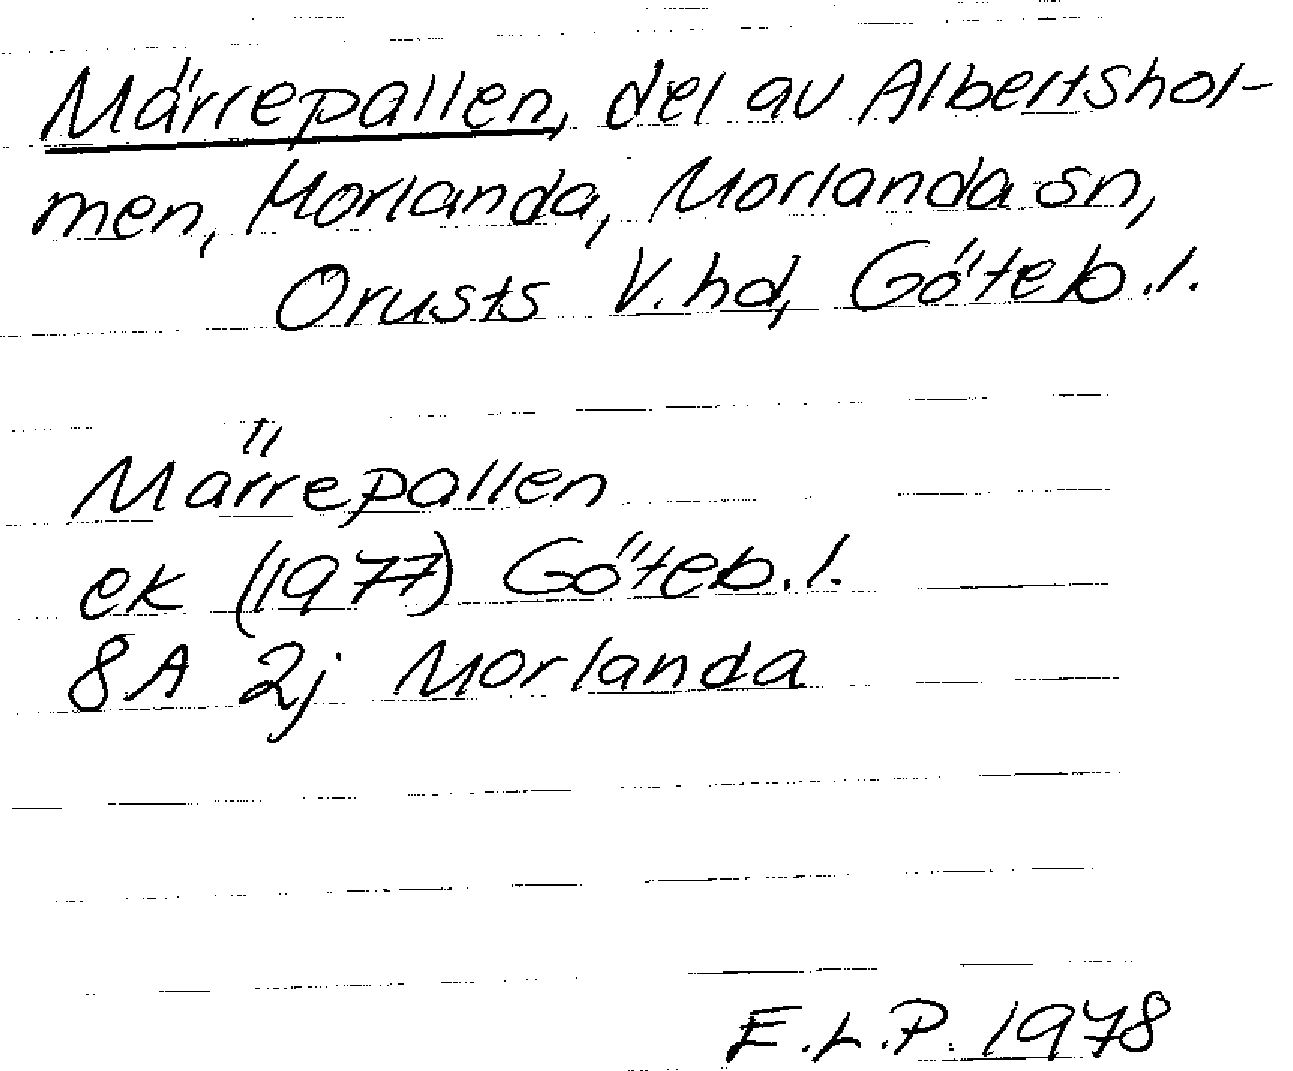 Märrepallen, del av Albertshol-
men, Morlanda, Morlanda sn,
Orusts V. hd, Göteb. l.
Märrepallen
ek (1977) Göteb. l.
8A 2j Morlanda
E.L.P. 1978